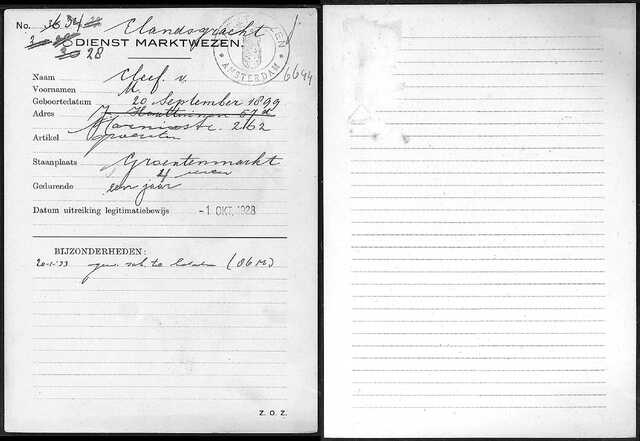 No. Elandsgracht
DIENST MARKTWEZEN.
28
AMSTERDAM
6644
Naam Cleef. v.
Voornamen M.
Geboortedatum 20 September 1899
Adres J. Houttuinen 57
Marnixstr. 262
Artikel groenten
Staanplaats Groentenmarkt
Gedurende een jaar
Datum uitreiking legitimatiebewijs -1 OKT. 1928
BIJZONDERHEDEN:
20-1-'33
Z. O. Z.